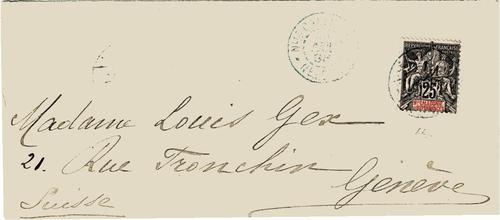 REPUBLIQUE FRANÇAISE
25
Madame Louis Gex
21. Rue Tronchin
Genève
Suisse